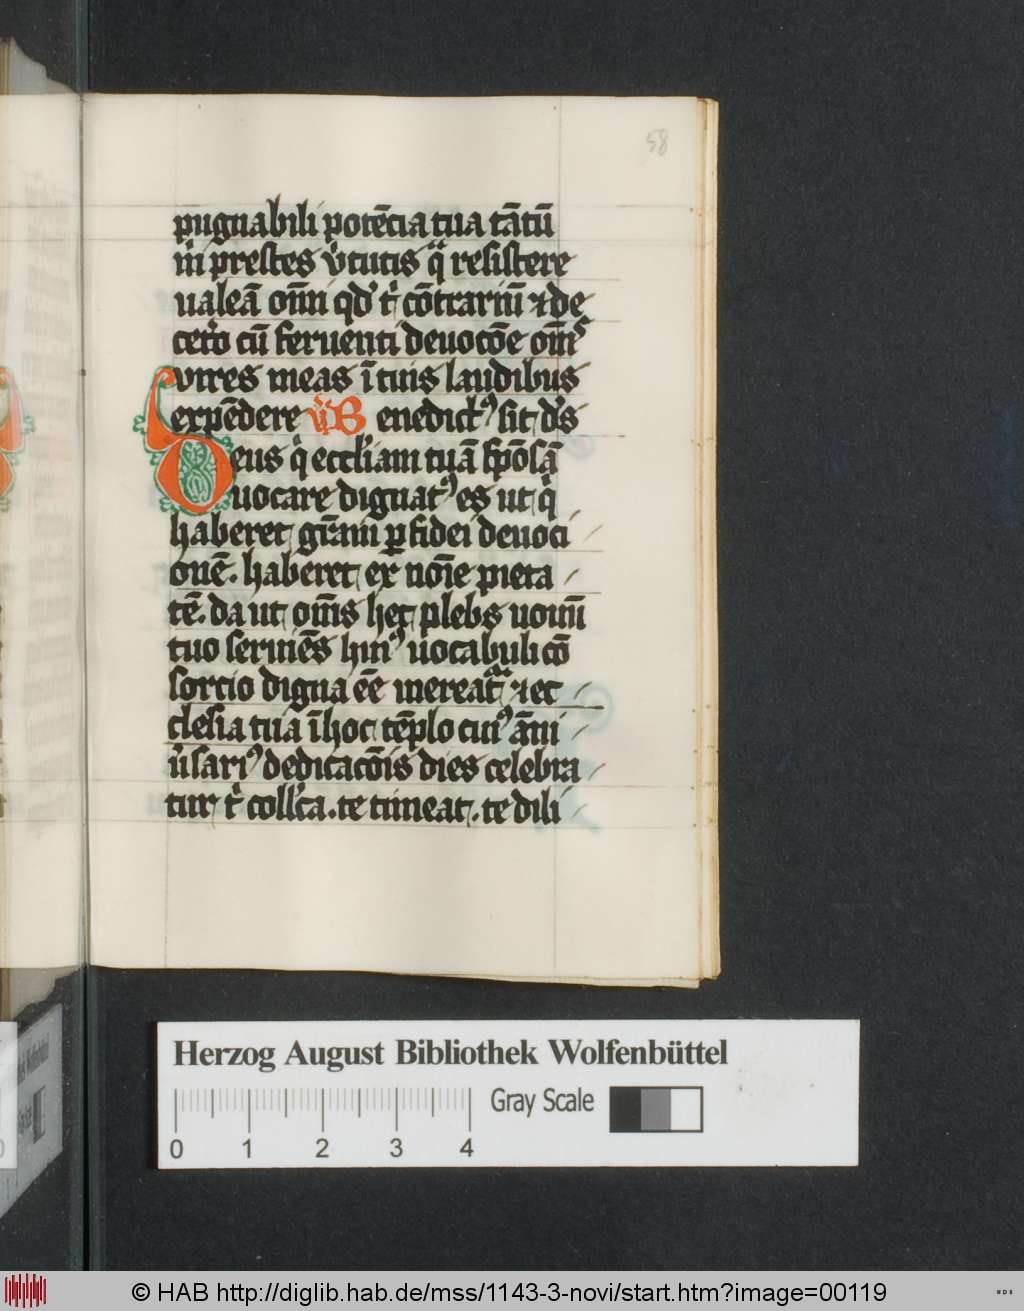 58
pugnabili potēcia tua tātū
m̄ prestes v̓tutis q̄ resistere
ualeā om̄i qd̓ t̓ cōtrariū ⁊ de
cet̓o cū feruenti deuocōe om̄s
vires meas ī tuis laudibus
expēdere v̓ Benedict⁹ sit d̄s
Deus q̓ eccl̓iam tuā spōsā
uocare dignat⁹ es ut q̓
haberet gr̄am p̱ fidei deuoci
onē. haberet ex noīe pieta
tē. da ut om̄s hec plebs nomī
tuo seruiēs hui⁹ uocabuli cō
sorcio digna ēe mereat̃ ⁊ ec
clesia tua ī hoc tēplo cui⁹ āni
u̓sari⁹ dedicacōis dies celebra
tur t̓ coll̓ca. te timeat. te dili
Herzog August Bibliothek Wolfenbüttel
Gray Scale
0 1 2 3 4
© HAB http://diglib.hab.de/mss/1143-3-novi/start.htm?image=00119